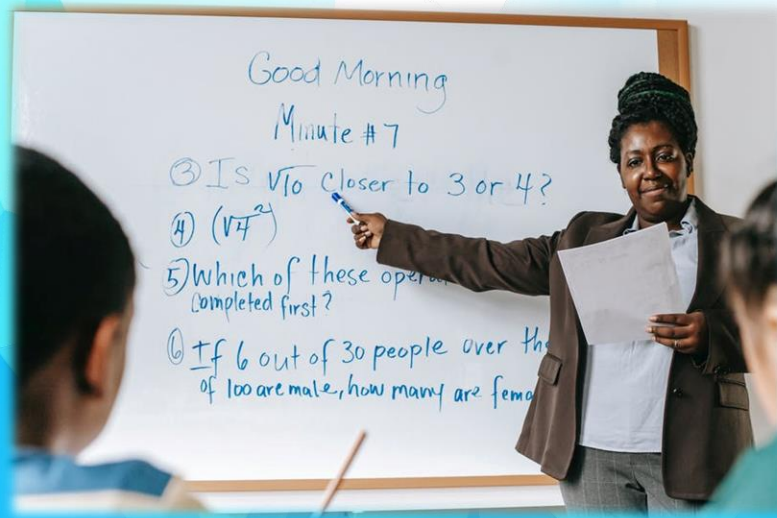 Good Morning
Minute #7
③ Is √10 closer to 3 or 4?
④ (√4²)
5) Which of these
completed first?
⑥ If 6 out of 30 people over the
of 100 are male, how many are